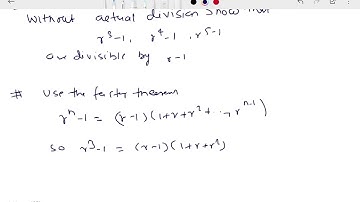 without actual division show that
r³-1, r⁴-1, r⁵-1
are divisible by r-1
# Use the factor theorem
rⁿ-1 = (r-1)(1+r+r²+...+rⁿ⁻¹)
so r³-1 = (r-1)(1+r+r²)